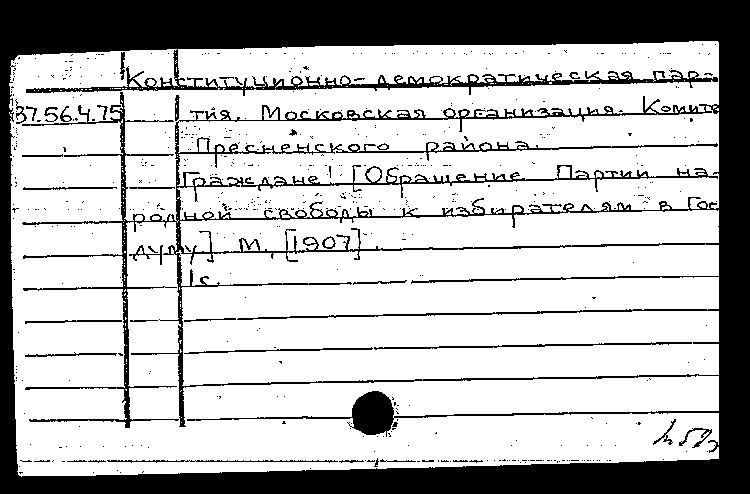 Конституционно-демократическая пар-
37.56.4.75 тия. Московская организация. Комите
Пресненского района.
Граждане! [Обращение Партии на-
родной свободы к избирателям в Гос
думу] М., [1907].
1с.